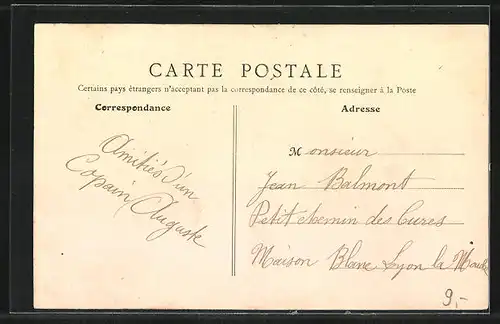 CARTE POSTALE
Certains pays étrangers n'acceptant pas la correspondance de ce côté, se renseigner à la Poste
Correspondance
Adresse
Amitiés d'un
Copain Auguste
Monsieur
Jean Balmont
Petit chemin des Cures
Maison Blanc Lyon la
9.-